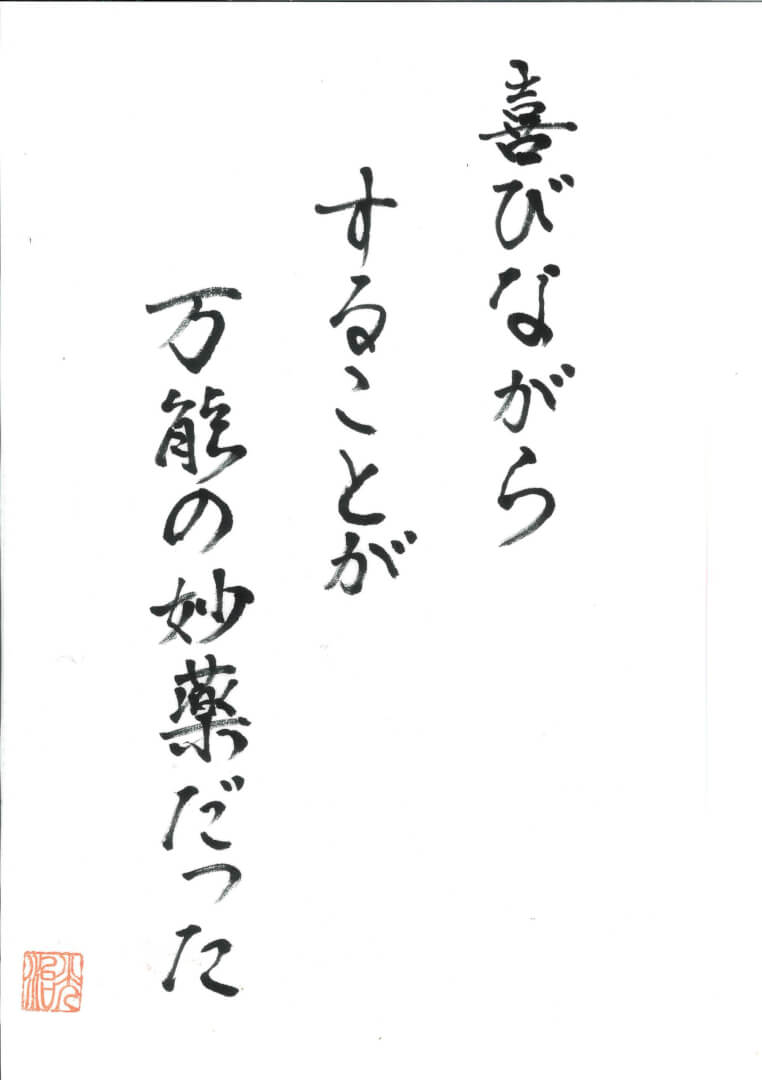 喜びながら
することが
万能の妙薬だった